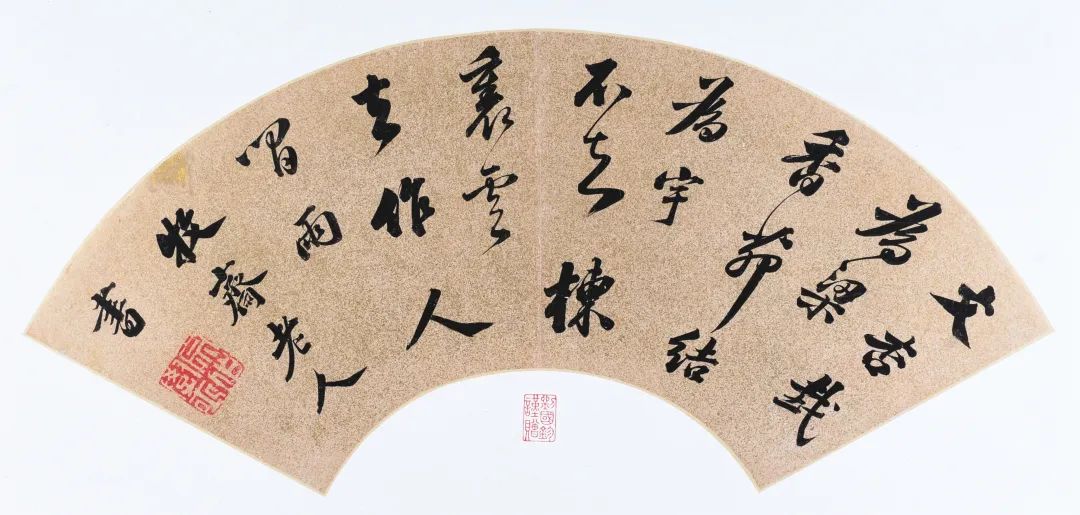 文杏裁
為梁
香茅結
為宇
不知棟
裏雲
去作人
間雨
牧齋老人
書
劉國鈞
謹贈